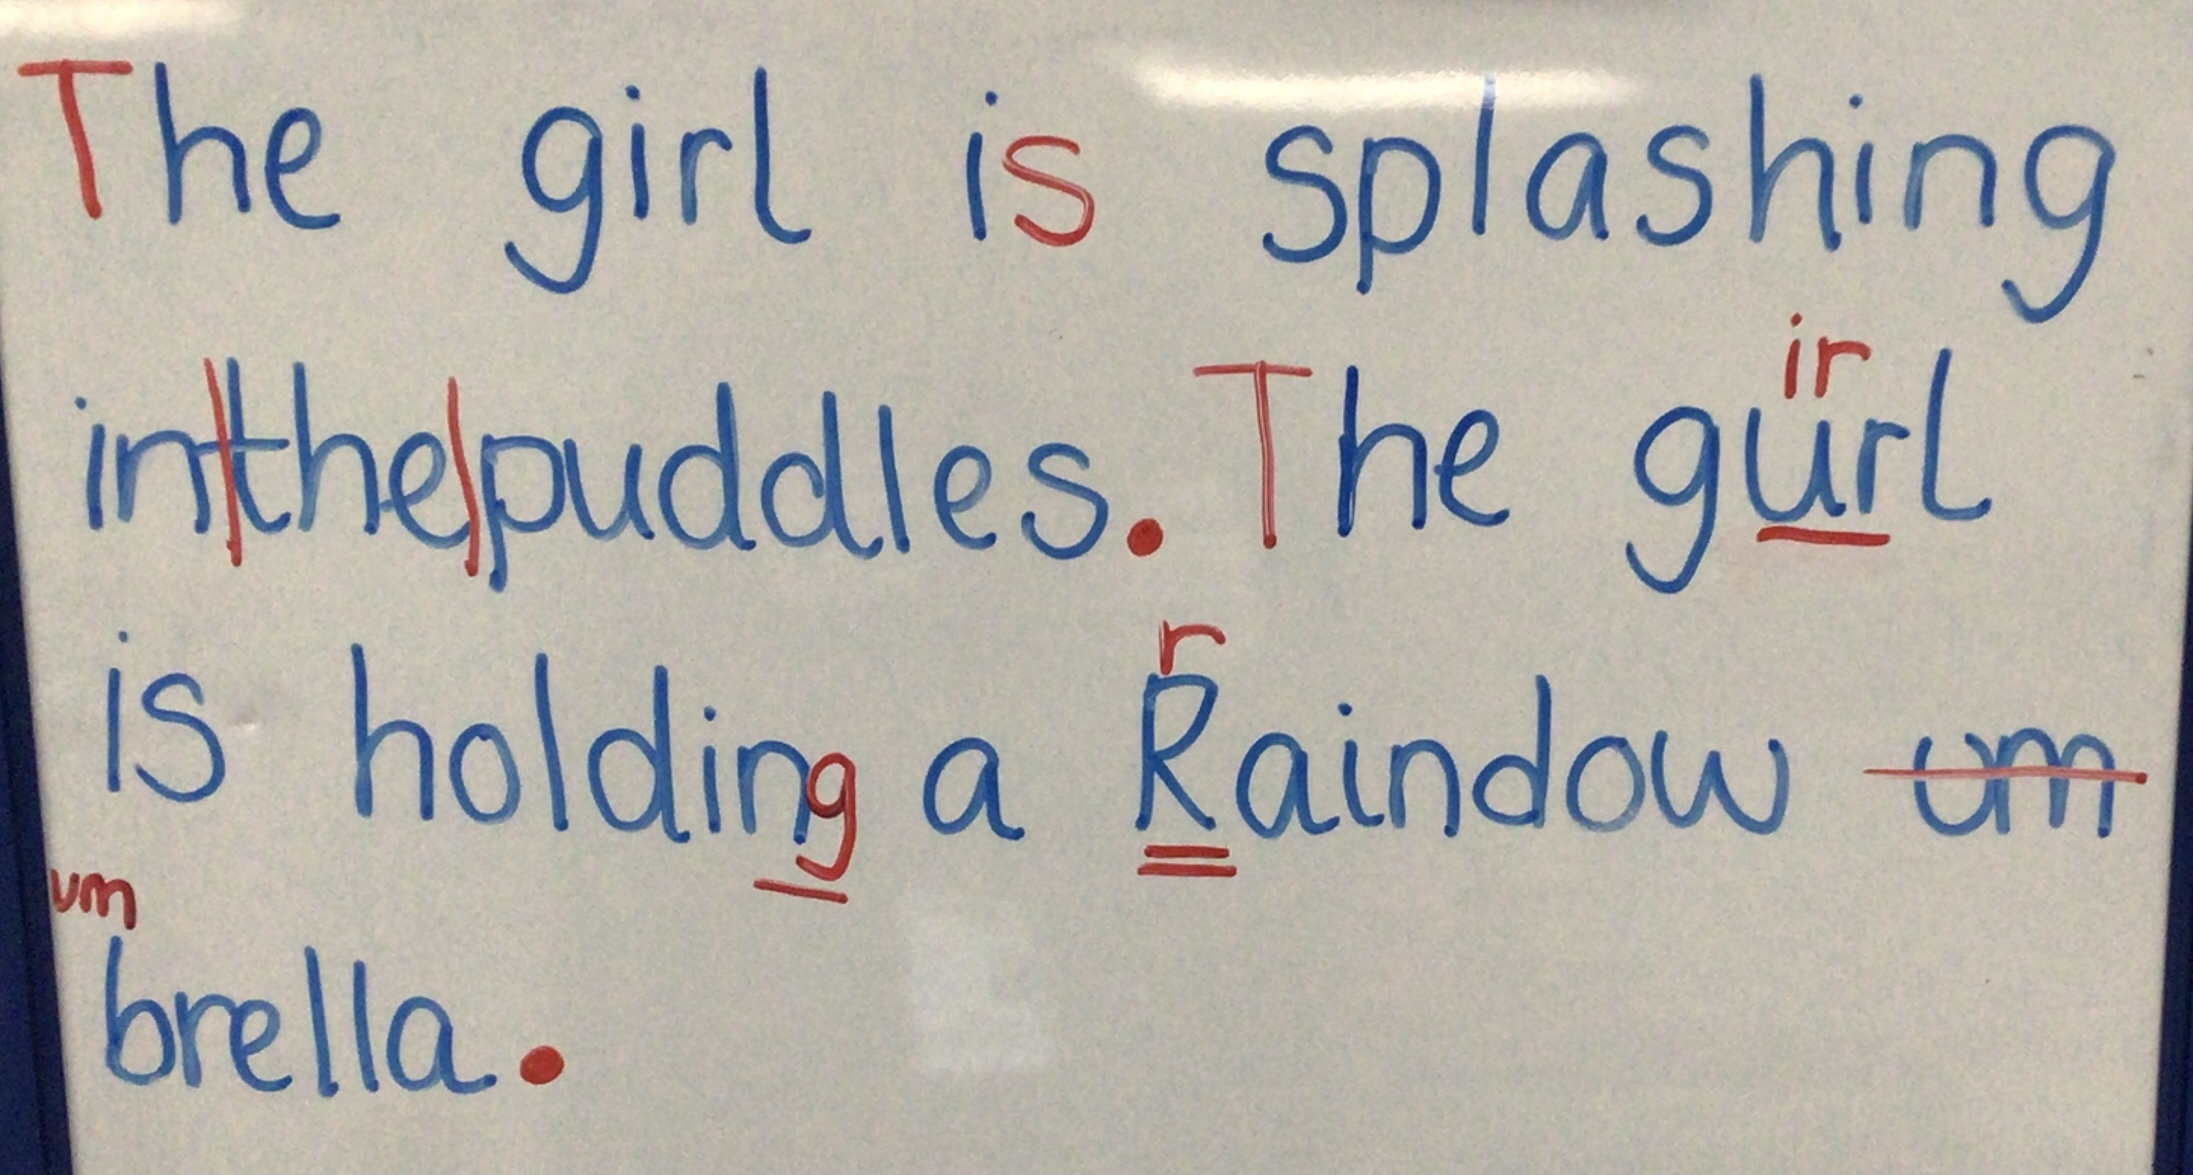 The girl is splashing
inthepuddles. The gurl
ir
is holding a Raindow um
r
um
brella.